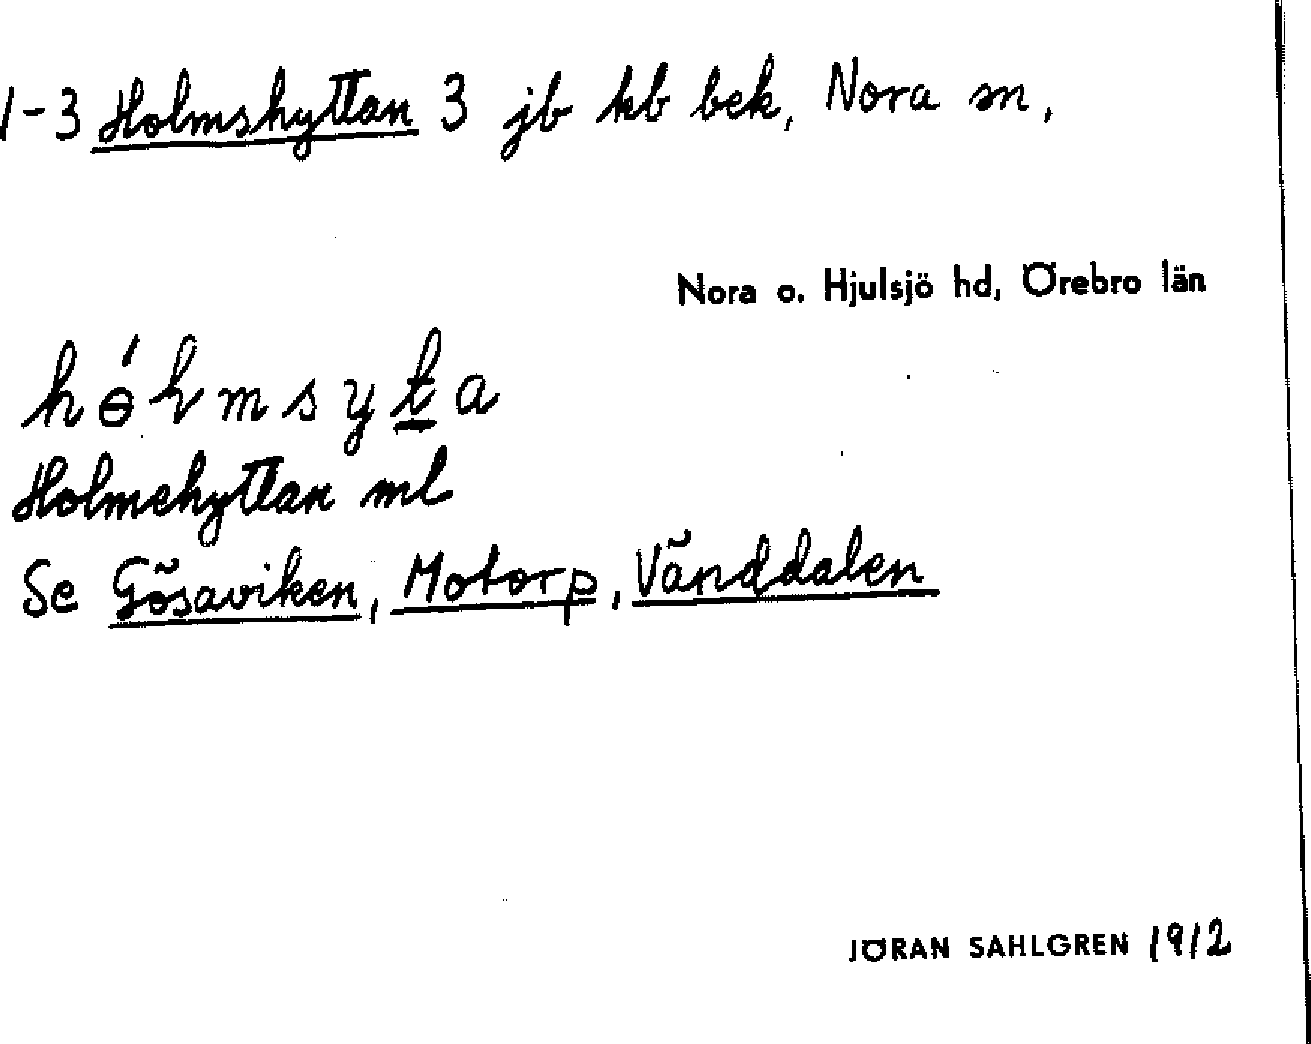 1-3 Holmshyttan 3 jb kb bek, Nora sn,
Nora o. Hjulsjö hd, Örebro län
hɵ́lmsyta
Holmehyttan ml
Se Gösaviken, Motorp, Vänddalen
JÖRAN SAHLGREN 1912